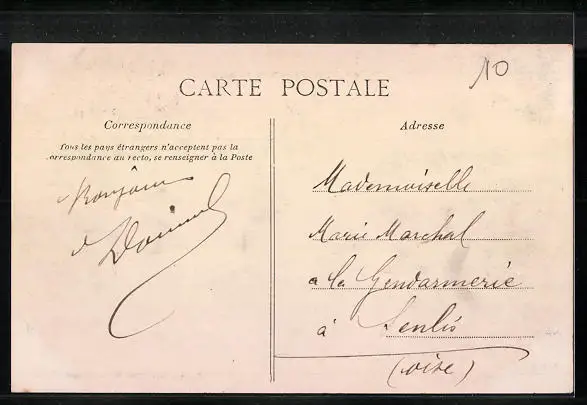 10
CARTE POSTALE
Correspondance
Tous les pays étrangers n'acceptent pas la
correspondance au recto, se renseigner à la Poste
Bonjour
Adresse
Mademoiselle
Marie Marchal
a la Gendarmerie
à Senlis
(oise)